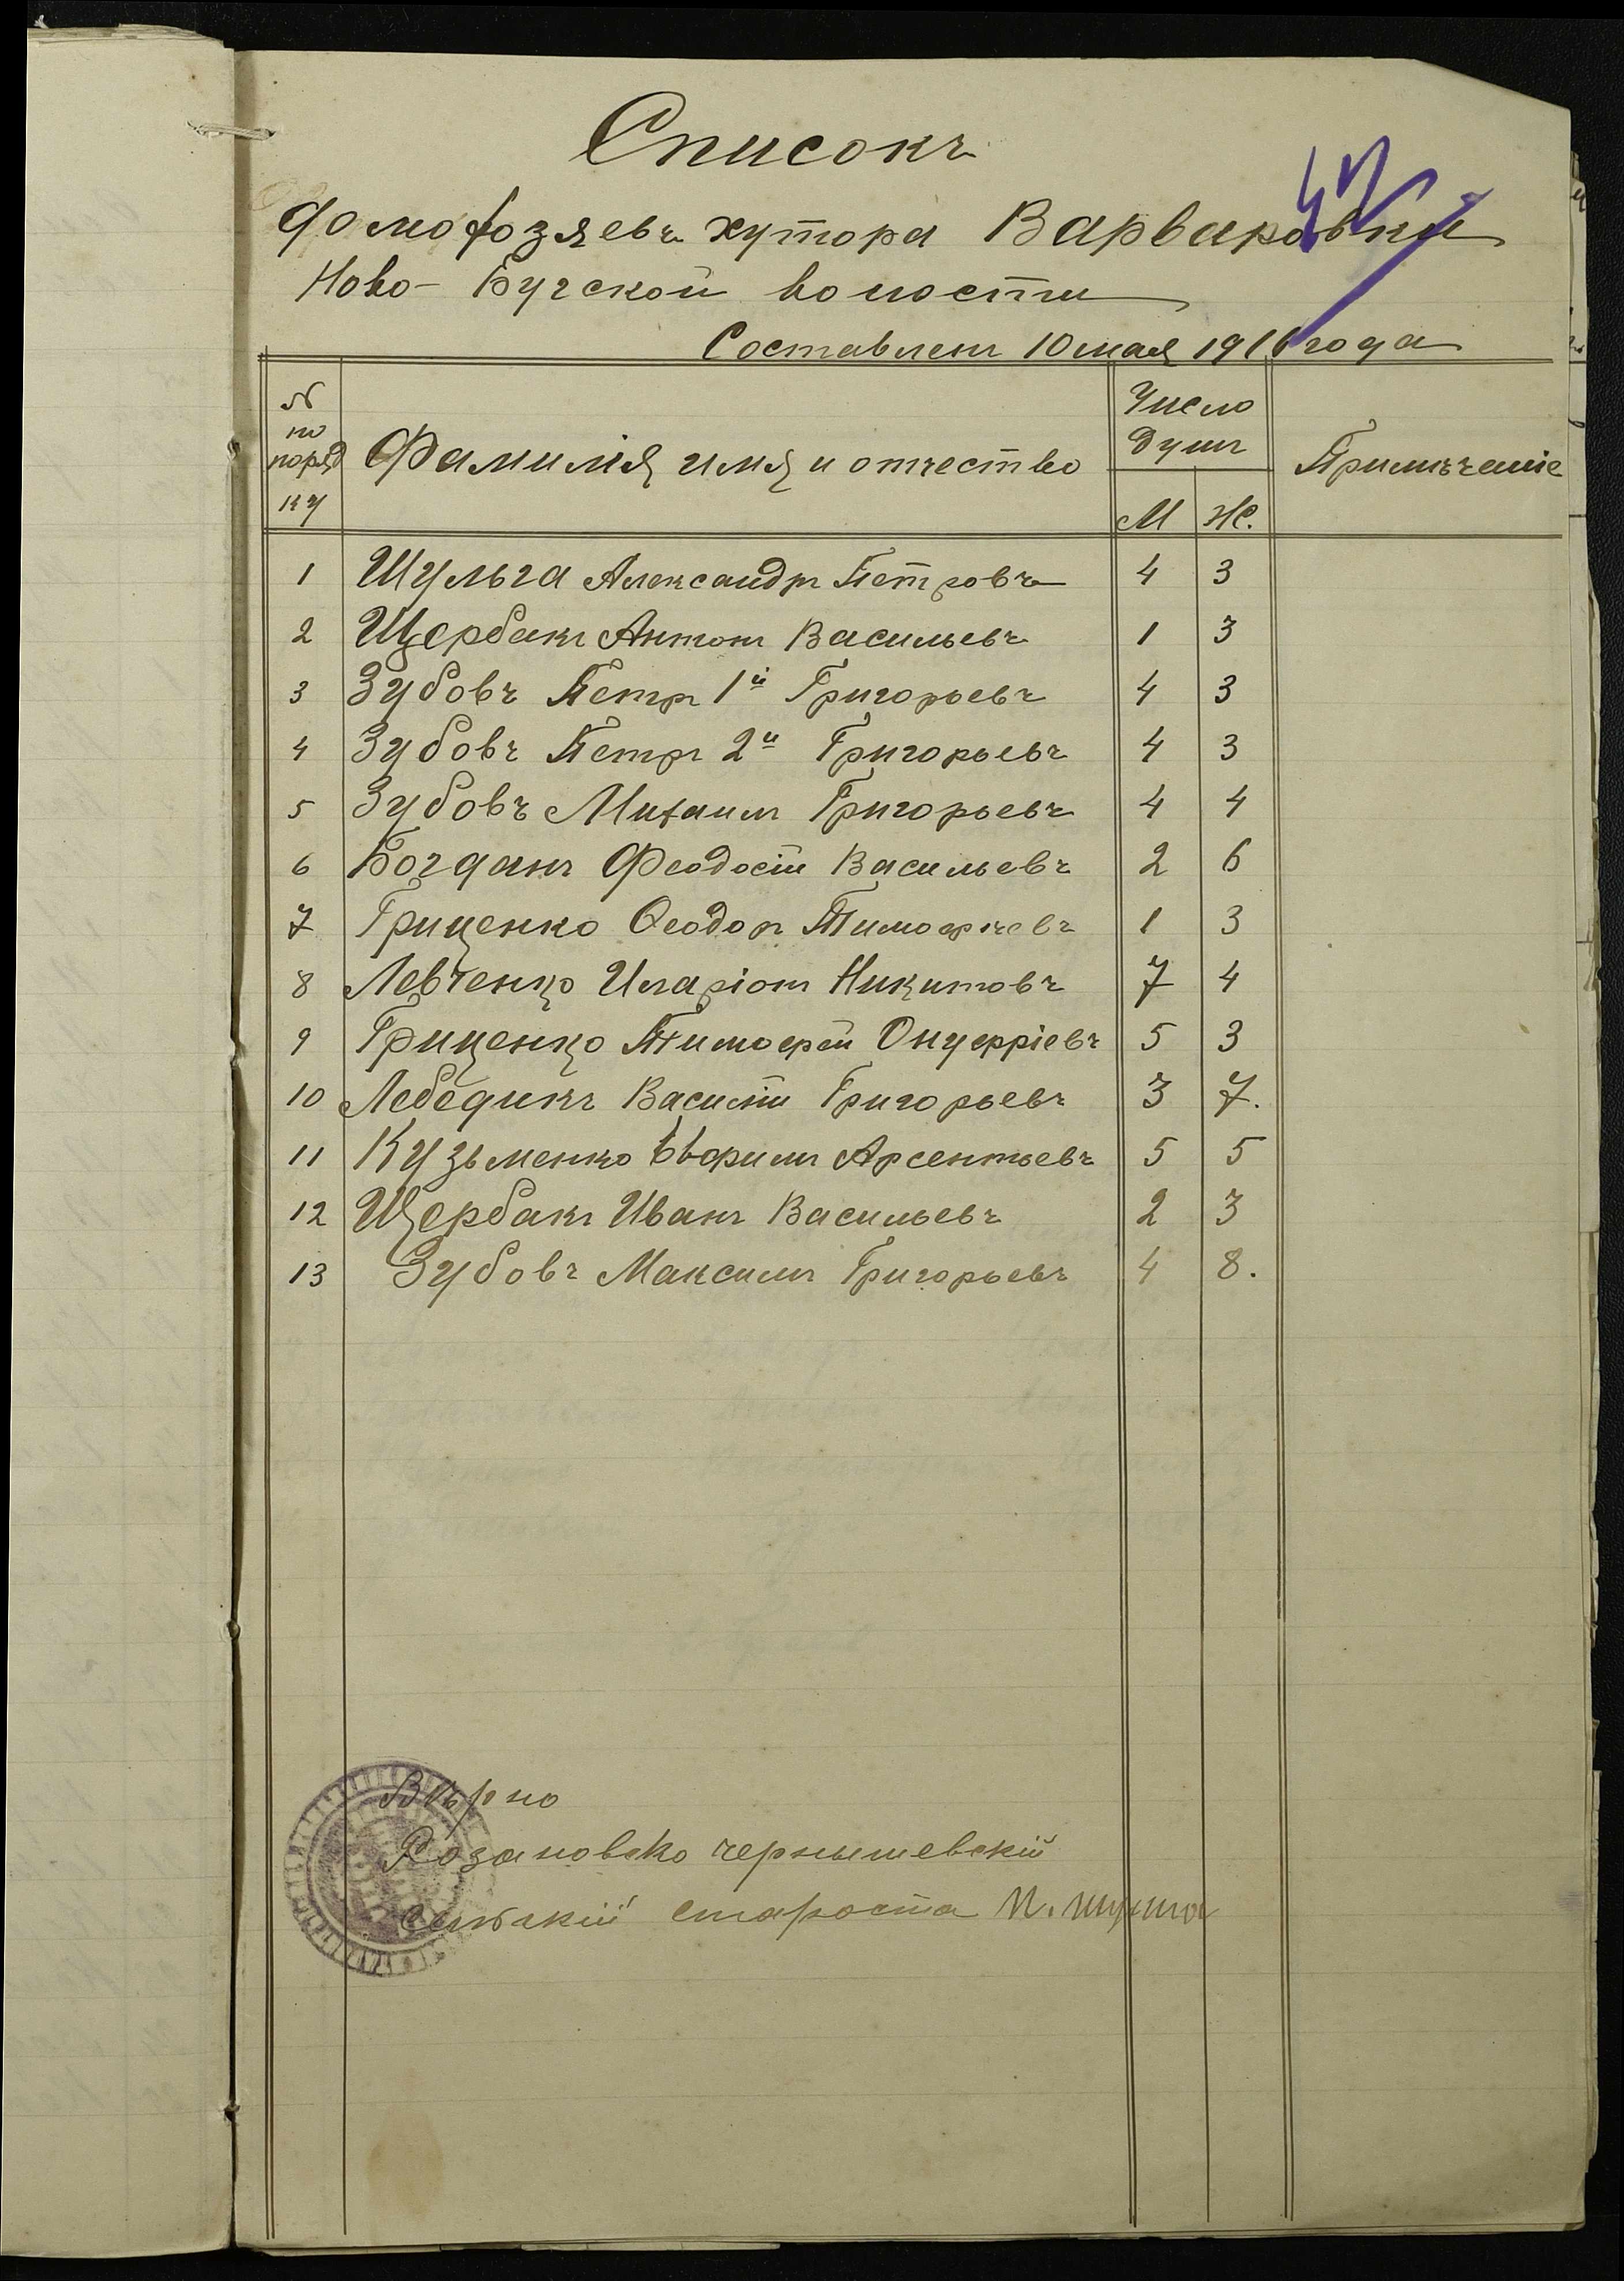 Списокъ
домохозяевъ хутора Варваровки
Ново-Бугской волости
Составленъ 10 мая 1916 года
№ по поряд ку | Фамилія имя и отчество | Число душъ М Ж. | Примѣчаніе
1 Шульга Александръ Петровъ 4 3
2 Щербакъ Антонъ Васильевъ 1 3
3 Зубовъ Петръ 1й Григорьевъ 4 3
4 Зубовъ Петръ 2й Григорьевъ 4 3
5 Зубовъ Михаилъ Григорьевъ 4 4
6 Богданъ Феодосій Васильевъ 2 6
7 Гриценко Ѳеодоръ Тимофѣевъ 1 3
8 Левченко Иларіонъ Никитовъ 7 4
9 Гриценко Тимофей Онуфріевъ 5 3
10 Лебедикъ Василій Григорьевъ 3 7.
11 Кузьменко Арсентьевъ 5 5
12 Щербакъ Иванъ Васильевъ 2 3
13 Зубовъ Максимъ Григорьевъ 4 8.
Вѣрно
Розановско чернышевскій
сельскій староста П.